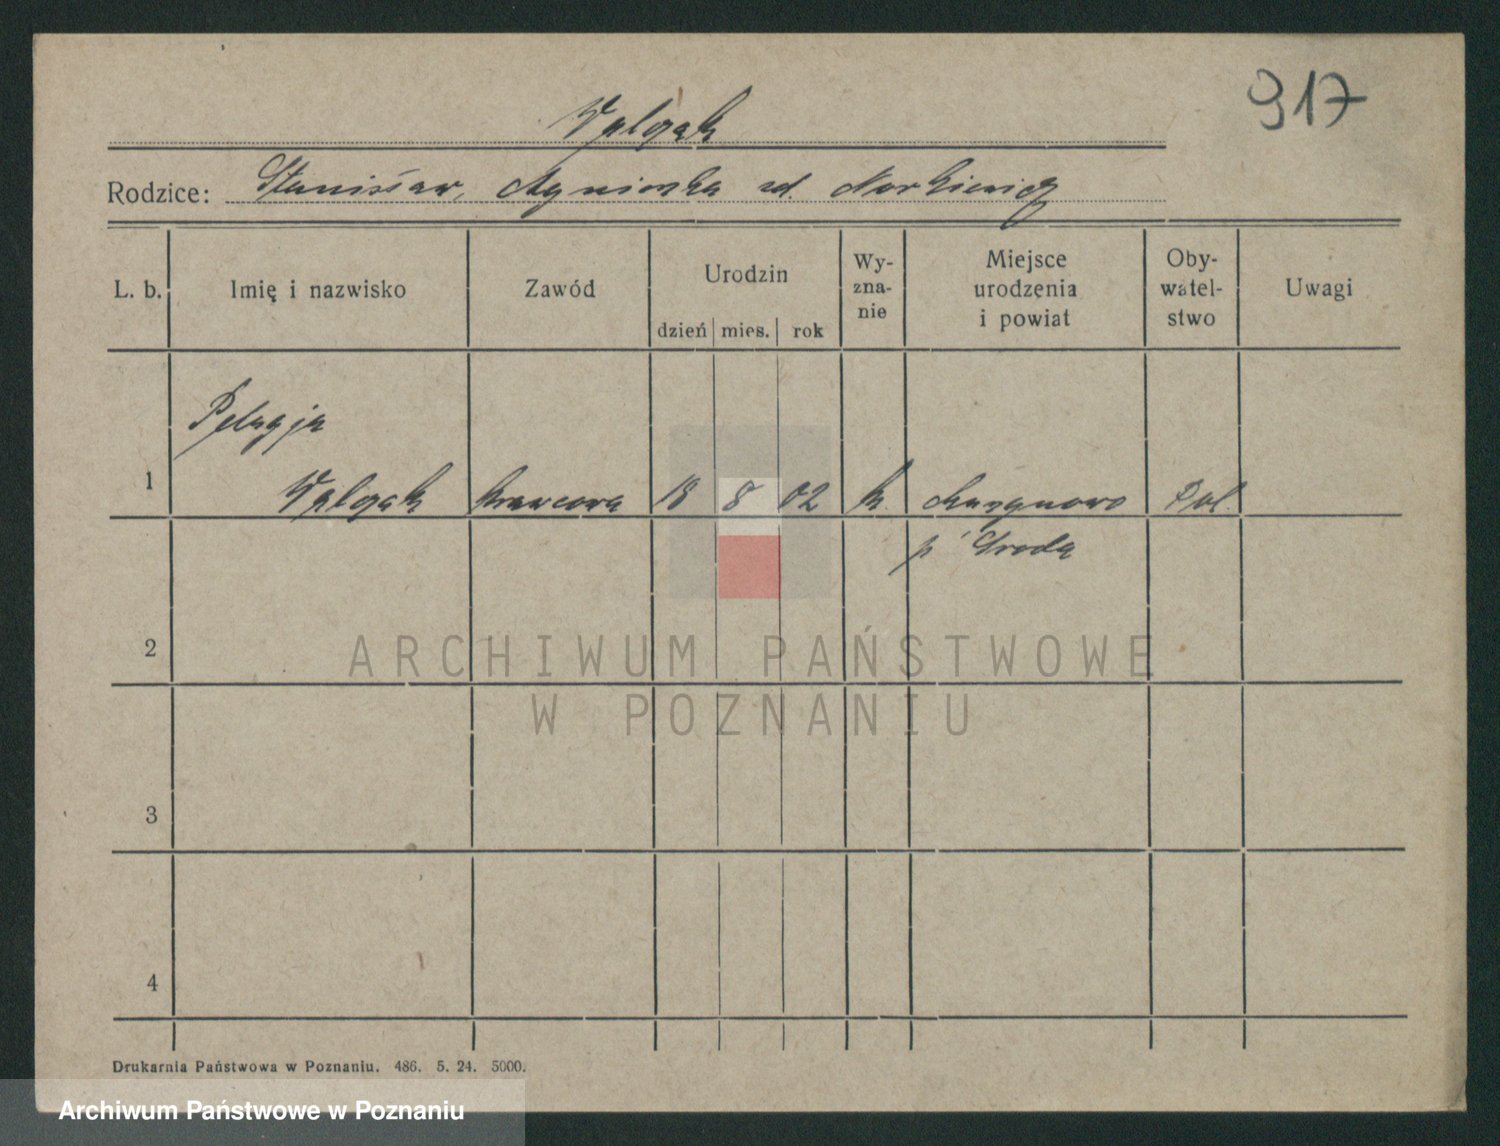 917
Walczak
Rodzice: Stanisław, Agnieszka zd. Norkiewicz
L. b. Imię i nazwisko Zawód Urodzin dzień mies. rok Wy-zna-nie Miejsce urodzenia i powiat Oby-watel-stwo Uwagi
Pelagja
1 Walczak krawcowa 18 8 02 k. Pol.
p. Środa
2
ARCHIWUM PAŃSTWOWE
W POZNANIU
3
4
Drukarnia Państwowa w Poznaniu. 486. 5. 24. 5000.
Archiwum Państwowe w Poznaniu